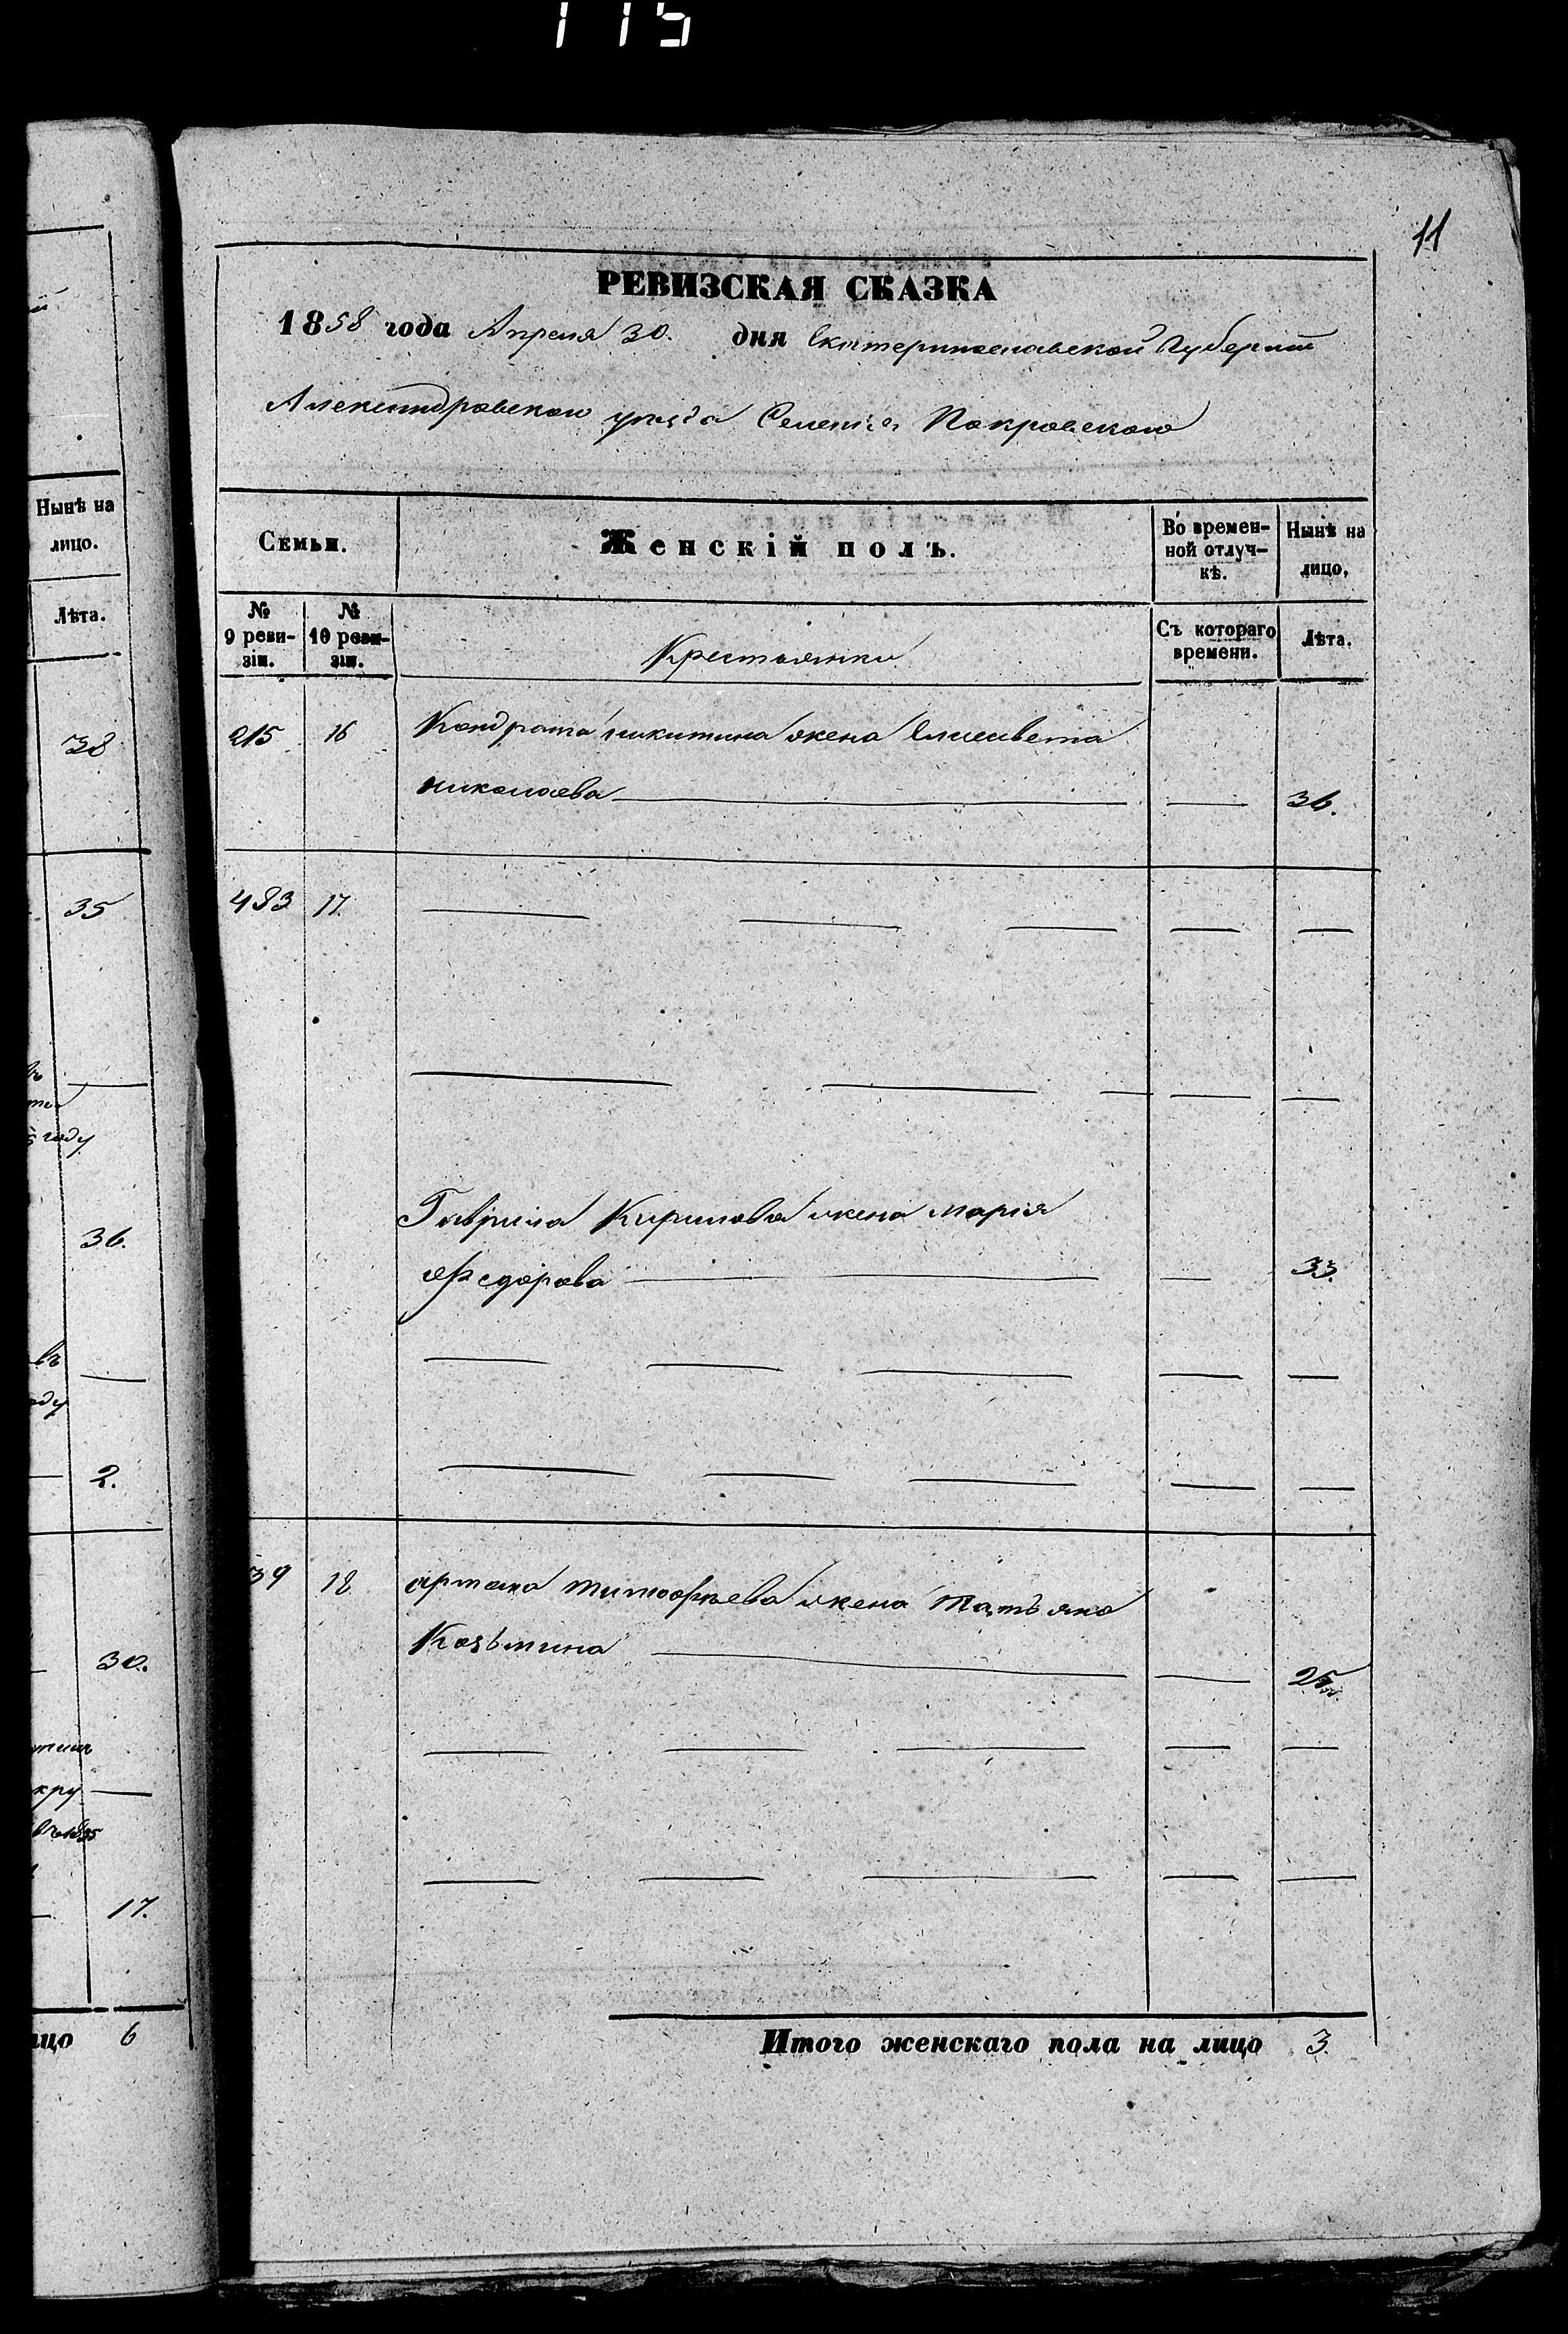 115
11
РЕВИЗСКАЯ СКАЗКА
1858 года Апреля 30. дня Екатеринославской Губерніи
Александровскаго уѣзда Селенія Покровскаго
Нынѣ на
лицо.
Лѣта.
Семьи.
Женскій полъ.
Во времен-
ной отлуч-
кѣ.
Нынѣ на
лицо,
№
9 реви-
зіи.
№
10 реви-
зіи.
Крестьянки
Съ котораго
времени.
Лѣта.
38
215 16 Кондрата Никитина жена Елисавета
Николаева 36.
35
483 17.
году
36.
Гаврила Кирилова жена Марія
Федорова 33.
въ
оду
2.
39 18 Артема Тимофѣева жена Татьяна
Козьмина 25
30.
кру
17.
ицо 6
Итого женскаго пола на лицо 3.